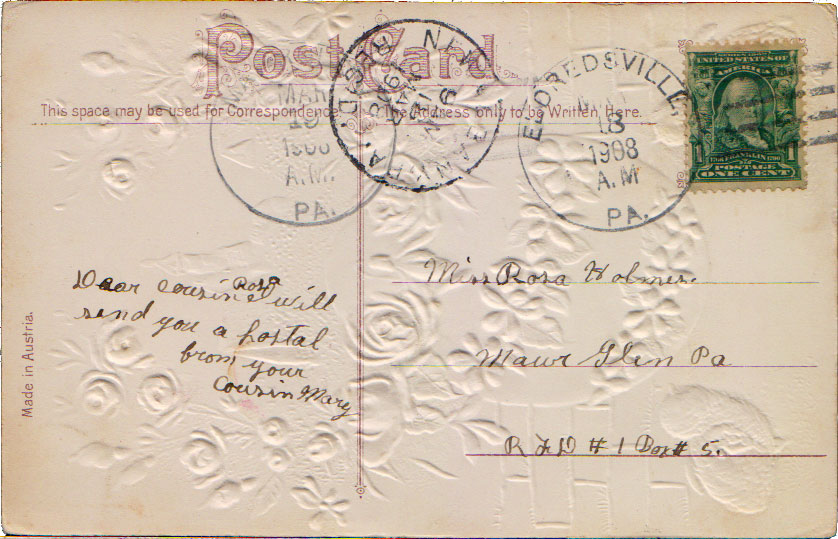 Post Card
This space may be used for Correspondence.
The Address only to be Written Here.
MAR
1908
A.M.
PA.
REC'D.
ELDREDSVILLE,
18
1908
A.M
PA.
UNITED STATES OF
AMERICA
1 1
FRANKLIN
POSTAGE
ONE CENT
Dear cousin Rosa
I will
send you a postal
from your
Cousin Mary
Miss Rosa Holmes.
Mawr Glen Pa
R F D # 1 Box # 5.
Made in Austria.